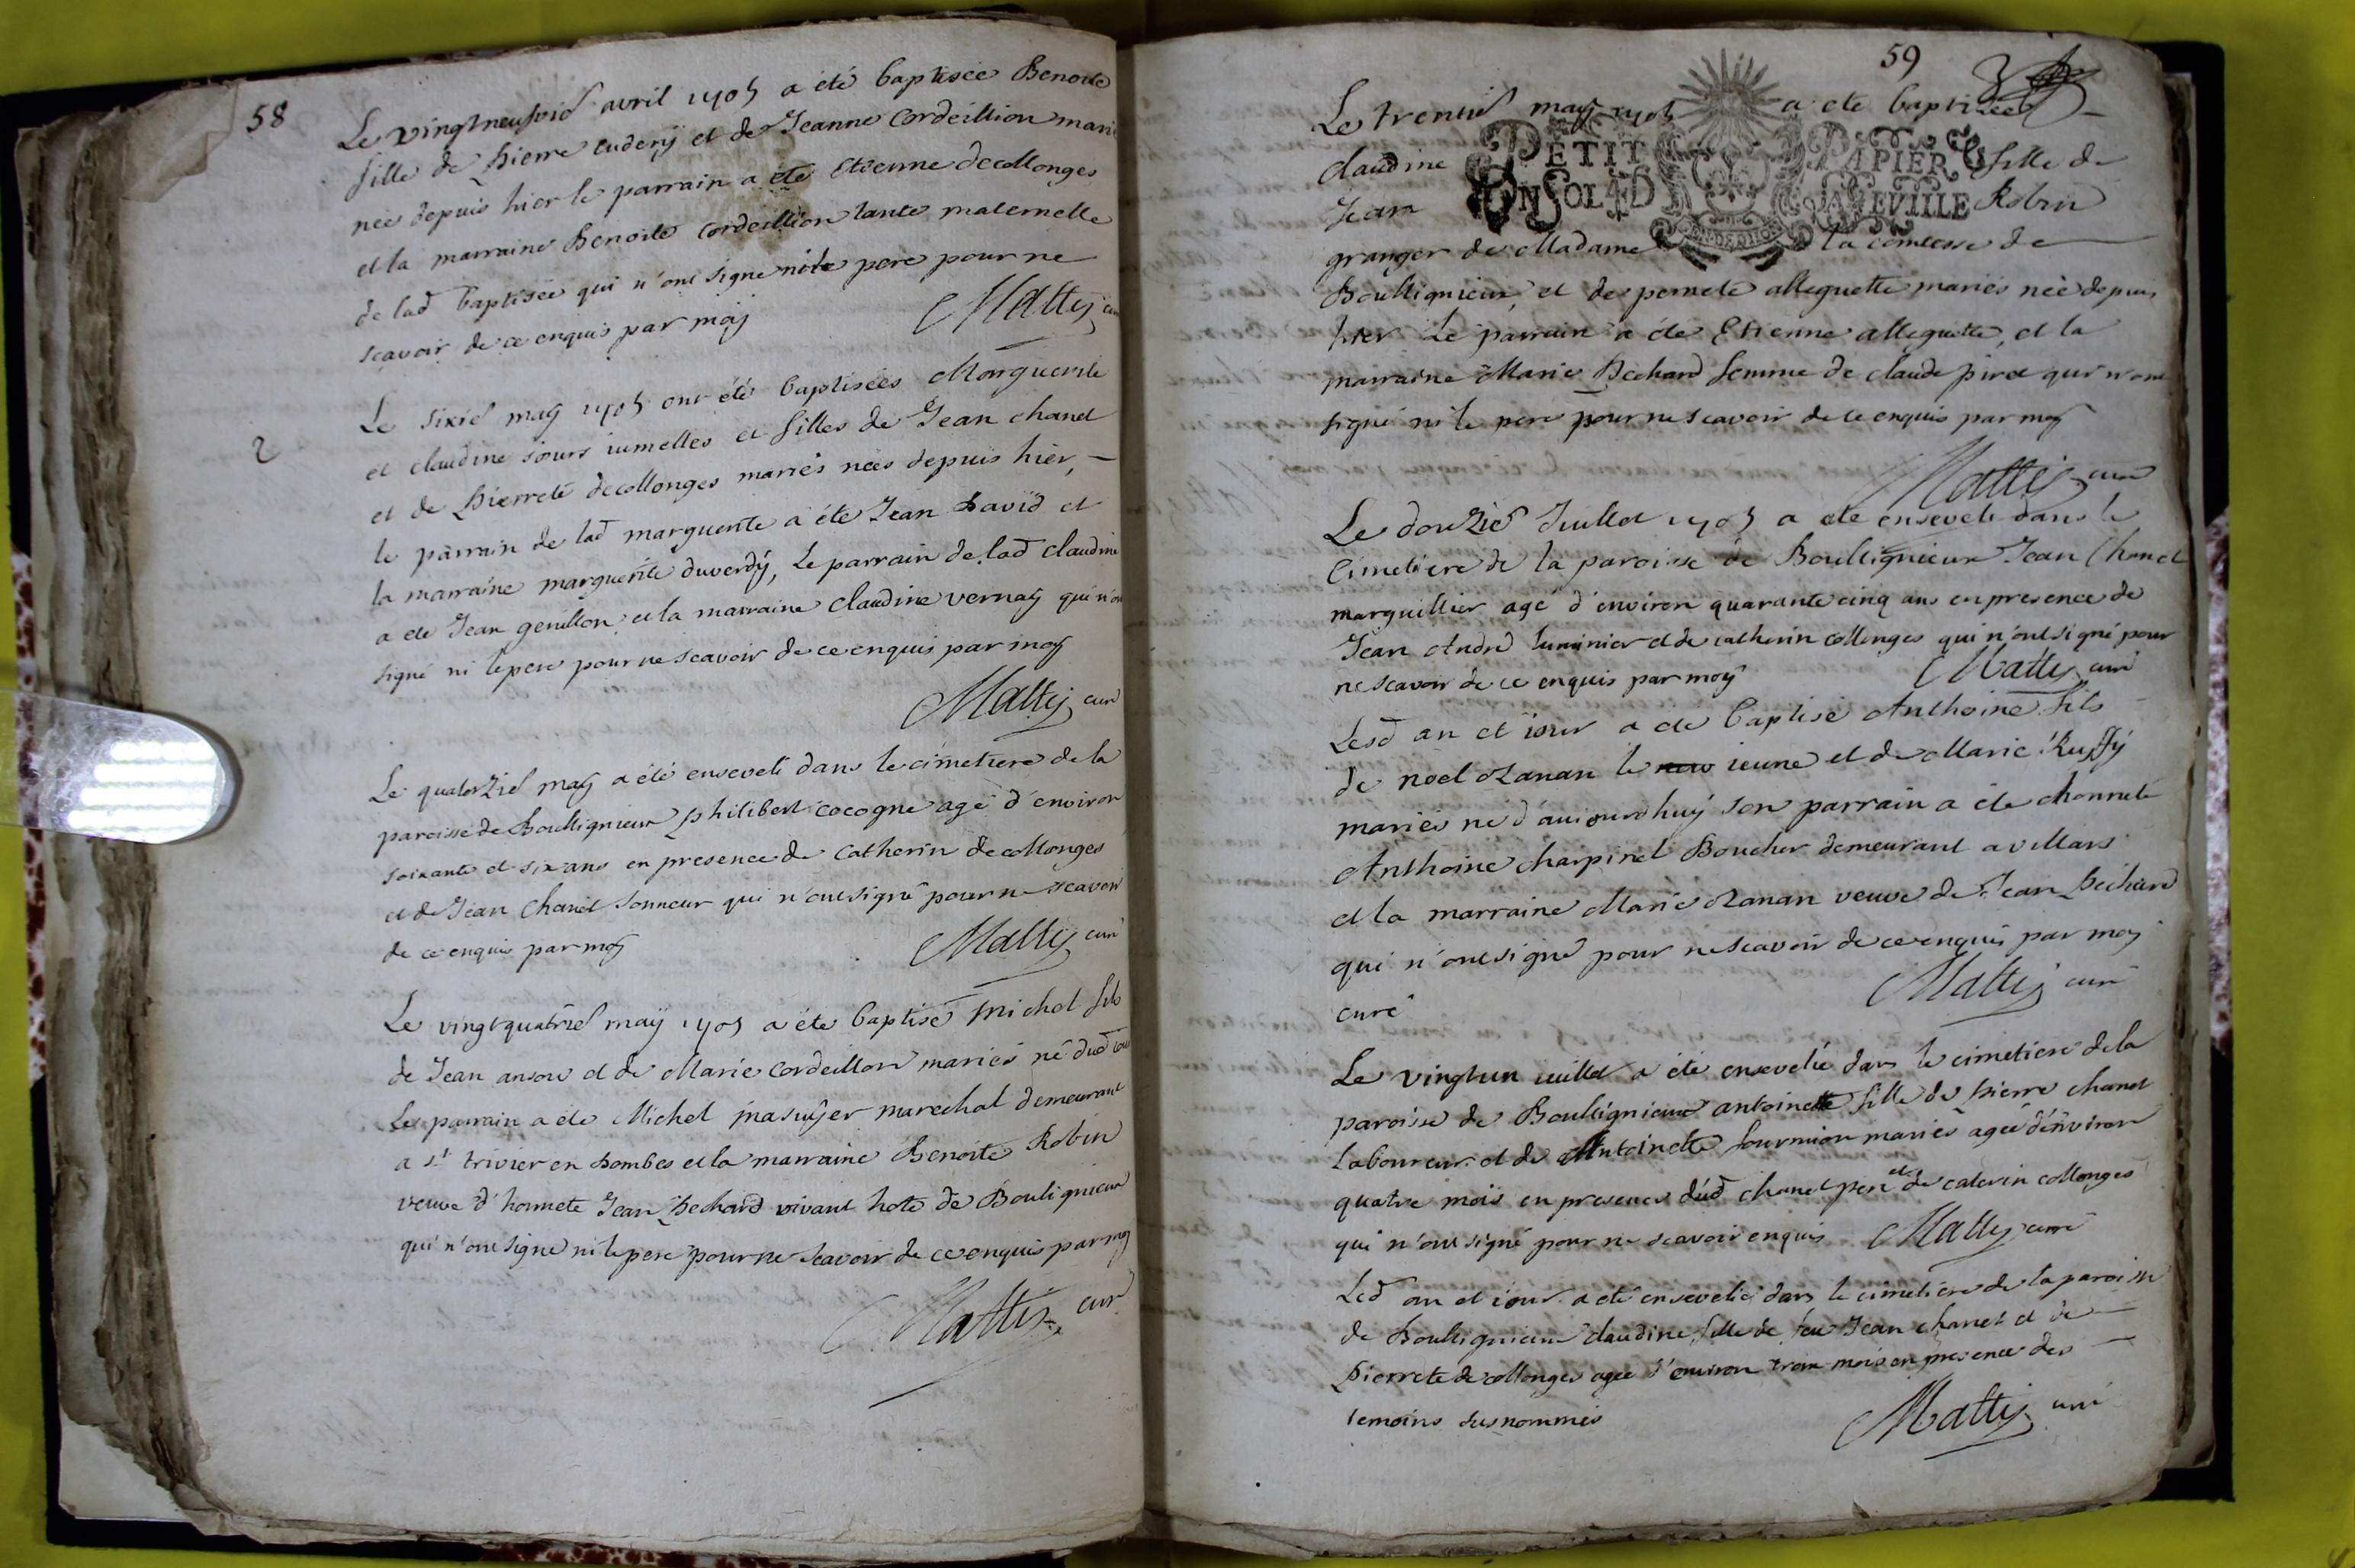 58
Le vingtneufvie avril 1705 a été baptisée Benoite
fille de Pierre cudery et de Jeanne Cordeillion mariés
née depuis hier le parrain a été Etienne decollonges
et la marraine Benoite Cordeillion tante maternelle
de lad baptisée qui n'ont signe ni le pere pour ne
scavoir de ce enquis par moy
Mattij curé
2
Le sixie may 1705 ont été baptisées Marguerite
et claudine sœurs iumelles et filles de Jean chanel
et de Pierrete decollonges mariés nées depuis hier,
le parrain de lad marguerite a été Jean David et
la marraine marguerite duverdÿ, Le parrain de lad claudine
a été Jean genillon et la marraine claudine vernaÿ qui n'ont
signé ni le pere pour ne scavoir de ce enquis par moy
Mattij curé
Le quatorzie may a été enseveli dans le cimetiere de la
paroisse de Boulligneux Philibert cocogne agé d'environ
soixante et six ans en presence de Catherin decollonges
et de Jean Chanel sonneur qui n'ont signé pour ne scavoir
de ce enquis par moy
Mattij curé
Le vingtquatrie maÿ 1705 a été baptisé Michel fils
de Jean et de Marie Cordeillon mariés né dud iour
Le parrain a été Michel marechal demeurant
a st trivier en Dombes et la marraine Benoite Robin
veuve d'honnete Jean Bechard vivant hote de Bouligneux
qui n'ont signé ni le pere pour ne scavoir de ce enquis par moy
Mattij curé
59
Le trentie may 1705 a été baptisée
claudine fille de
Jean Robin
PETIT PAPIER
UN SOL 4 D LA FEVILLE
granger de Madame la comtesse de
Boulligneux et de pernete alleguette mariés née depuis
hier Le parrain a été Etienne alleguette, et la
marraine Marie Bechard femme de claude qui n'ont
signé ni le pere pour ne scavoir de ce enquis par moy
Mattij curé
Le douzie Juillet 1705 a été enseveli dans le
Cimetiere de la paroisse de Boulligneux Jean Chanel
marguillier agé d'environ quarante cinq ans en presence de
Jean André luminier et de catherin collonges qui n'ont signé pour
ne scavoir de ce enquis par moy
Mattij curé
Lesd an et iour a été baptisé Anthoine fils
de noel ozanan le ieune et de Marie Ruffÿ
mariés né d'auiourdhuÿ son parrain a été honnete
Anthoine charpinel Boucher demeurant a villars
et la marraine Marie ozanan veuve de Jean Bechard
qui n'ont signé pour ne scavoir de ce enquis par moy
Mattij curé
curé
Le vingtun iuillet a été ensevelie dans le cimetiere de la
paroisse de Boulligneux antoinette fille de Pierre chanel
Laboureur et de Antoinette fournion mariés agée d'environ
quatre mois en presence dud chanel pere et de caterin collonges
qui n'ont signé pour ne scavoir enquis Mattij curé
Led an et iour a été ensevelie dans le cimetiere de la paroisse
de Boulligneux claudine fille de feu Jean chanel et de
Pierrete de collonges agée d'environ trois mois en presence des
temoins susnommés
Mattij curé